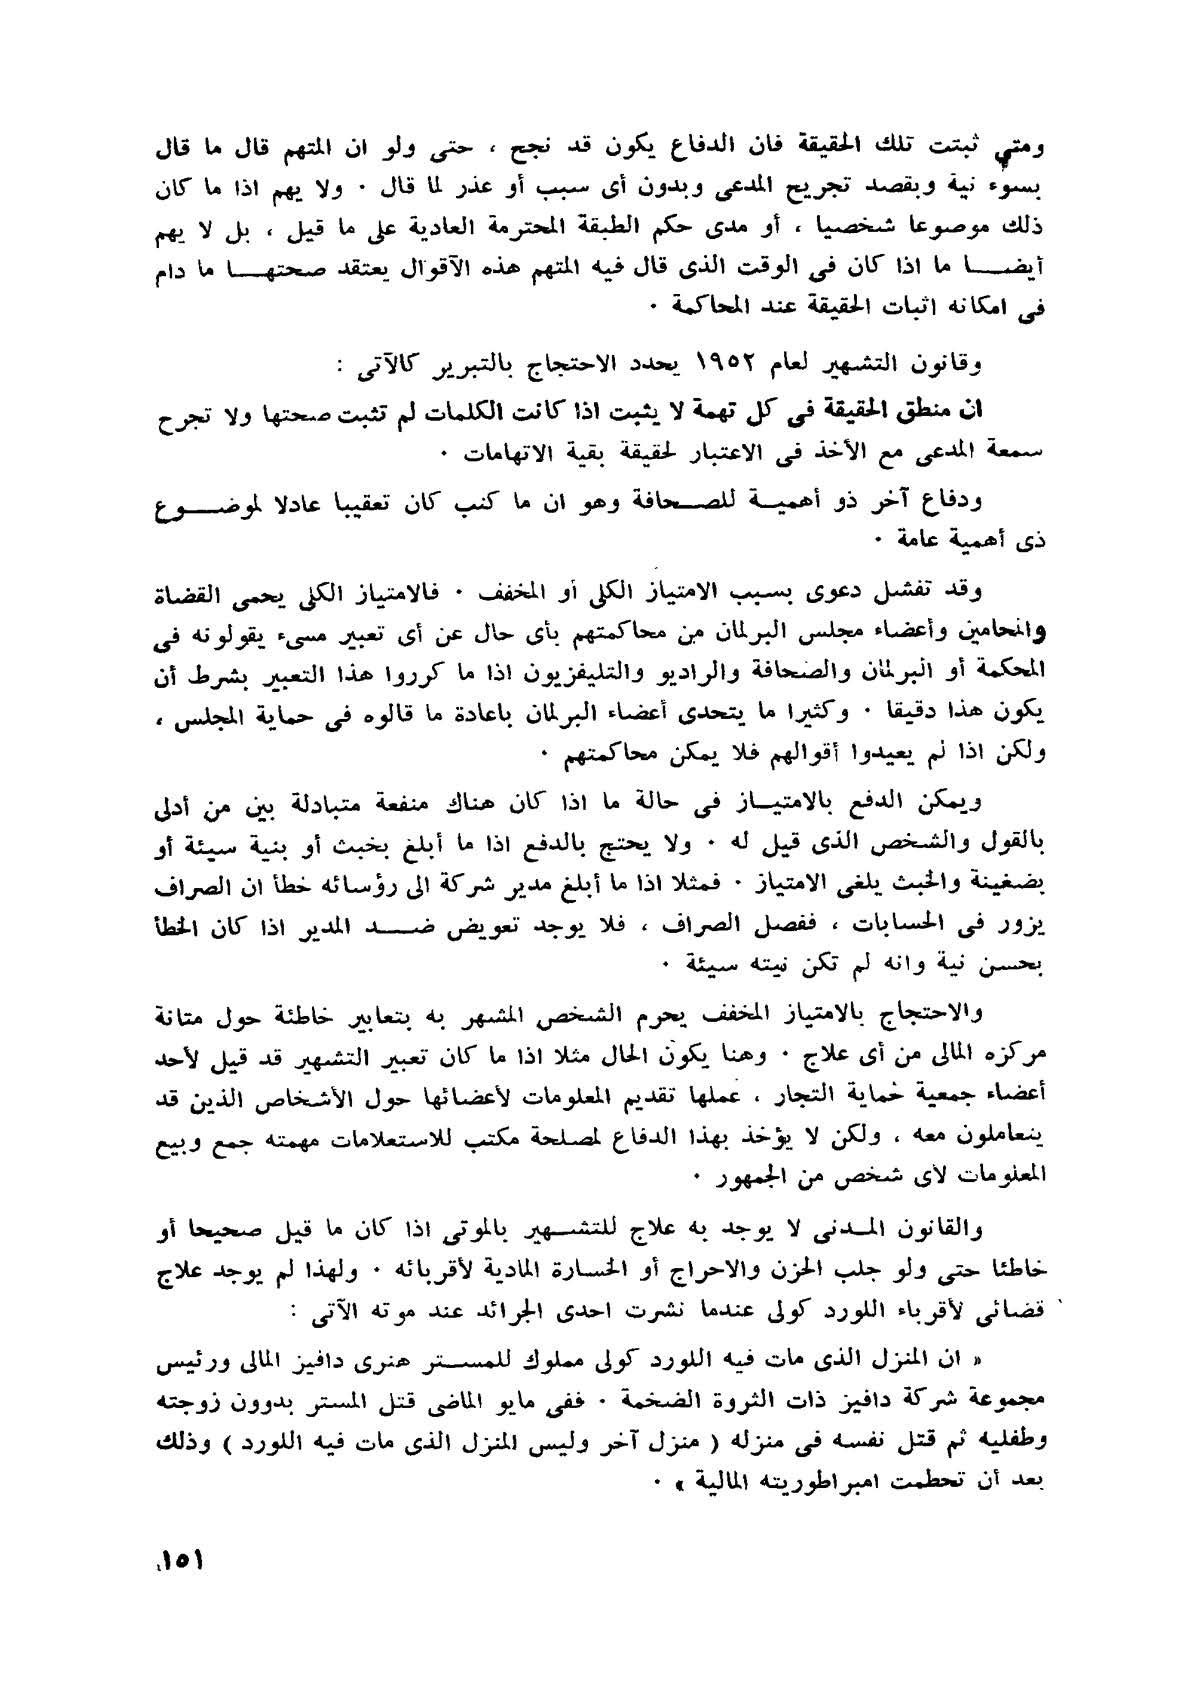 ومتى ثبتت تلك الحقيقة فان الدفاع يكون قد نجح ، حتى ولو ان المتهم قال ما قال
بسوء نية وبقصد تجريح المدعى وبدون أى سبب أو عذر لما قال ٠ ولا يهم اذا ما كان
ذلك موصوعا شخصيا ، أو مدى حكم الطبقة المحترمة العادية على ما قيل ، بل لا يهم
أيضـــا ما اذا كان فى الوقت الذى قال فيه المتهم هذه الأقوال يعتقد صحتهـــا ما دام
فى امكانه اثبات الحقيقة عند المحاكمة ٠
وقانون التشهير لعام ١٩٥٢ يحدد الاحتجاج بالتبرير كالآتى :
ان منطق الحقيقة فى كل تهمة لا يثبت اذا كانت الكلمات لم تثبت صحتها ولا تجرح
سمعة المدعى مع الأخذ فى الاعتبار لحقيقة بقية الاتهامات ٠
ودفاع آخر ذو أهميــة للصــحافة وهو ان ما كتب كان تعقيبا عادلا لموضــــوع
ذى أهمية عامة ٠
وقد تفشل دعوى بسبب الامتياز الكلى أو المخفف ٠ فالامتياز الكلى يحمى القضاة
والمحامين وأعضاء مجلس البرلمان من محاكمتهم بأى حال عن أى تعبير مسىء يقولونه فى
المحكمة أو البرلمان والصحافة والراديو والتليفزيون اذا ما كرروا هذا التعبير بشرط أن
يكون هذا دقيقا ٠ وكثيرا ما يتحدى أعضاء البرلمان باعادة ما قالوه فى حماية المجلس ،
ولكن اذا لم يعيدوا أقوالهم فلا يمكن محاكمتهم ٠
ويمكن الدفع بالامتيــاز فى حالة ما اذا كان هناك منفعة متبادلة بين من أدلى
بالقول والشخص الذى قيل له ٠ ولا يحتج بالدفع اذا ما أبلغ بخبث أو بنية سيئة أو
بضغينة والخبث يلغى الامتياز ٠ فمثلا اذا ما أبلغ مدير شركة الى رؤسائه خطأ ان الصراف
يزور فى الحسابات ، ففصل الصراف ، فلا يوجد تعويض ضــــد المدير اذا كان الخطأ
بحسن نية وانه لم تكن نيته سيئة ٠
والاحتجاج بالامتياز المخفف يحرم الشخص المشهر به بتعابير خاطئة حول متانة
مركزه المالى من أى علاج ٠ وهنا يكون الحال مثلا اذا ما كان تعبير التشهير قد قيل لأحد
أعضاء جمعية حماية التجار ، عملها تقديم المعلومات لأعضائها حول الأشخاص الذين قد
يتعاملون معه ، ولكن لا يؤخذ بهذا الدفاع لمصلحة مكتب للاستعلامات مهمته جمع وبيع
المعلومات لأى شخص من الجمهور ٠
والقانون المــدنى لا يوجد به علاج للتشــهير بالموتى اذا كان ما قيل صحيحا أو
خاطئا حتى ولو جلب الحزن والاحراج أو الخسارة المادية لأقربائه ٠ ولهذا لم يوجد علاج
قضائى لأقرباء اللورد كولى عندما نشرت احدى الجرائد عند موته الآتى :
« ان المنزل الذى مات فيه اللورد كولى مملوك للمســتر هنرى دافيز المالى ورئيس
مجموعة شركة دافيز ذات الثروة الضخمة ٠ ففى مايو الماضى قتل المستر بدوون زوجته
وطفليه ثم قتل نفسه فى منزله ( منزل آخر وليس المنزل الذى مات فيه اللورد ) وذلك
بعد أن تحطمت امبراطوريته المالية » ٠
١٥١